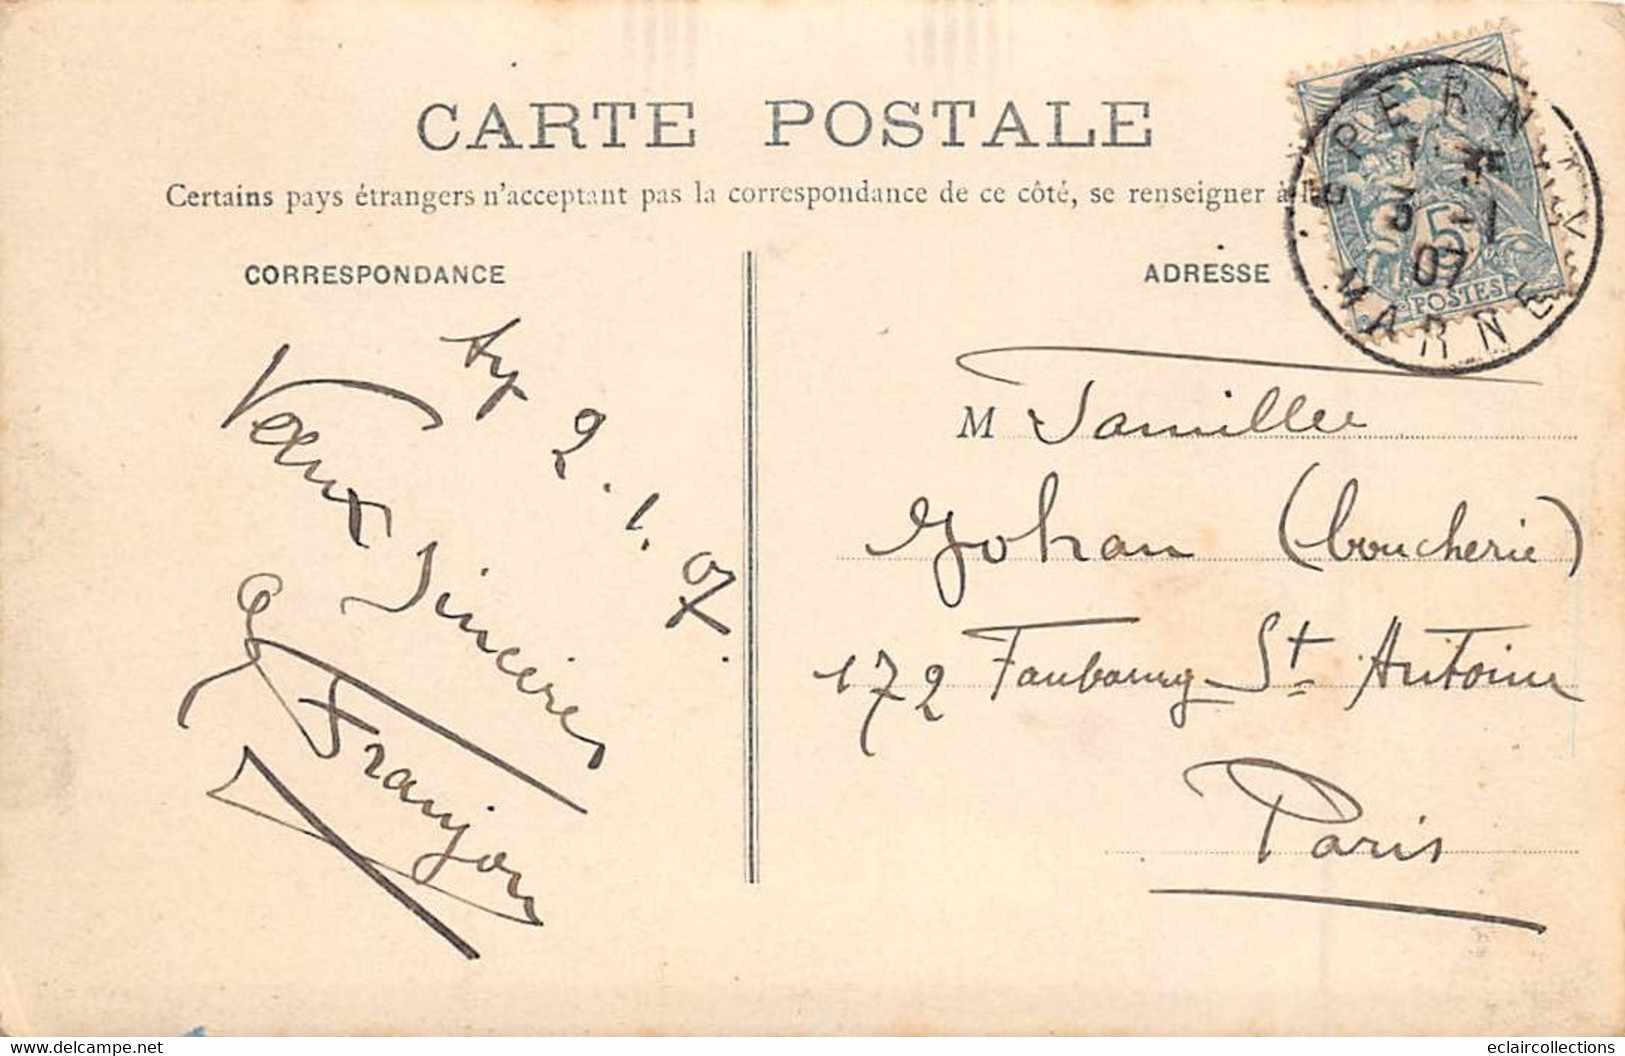 CARTE POSTALE
Certains pays étrangers n'acceptant pas la correspondance de ce côté, se renseigner à l
CORRESPONDANCE
ADRESSE
EPERNAY
3 - 1
07
MARNE
5
POSTES
Ay 2.1.07.
Vœux Sincères
Franjou
M Famille
Johan (boucherie)
172 Faubourg St Antoine
Paris
www.delcampe.net
eclaircollections